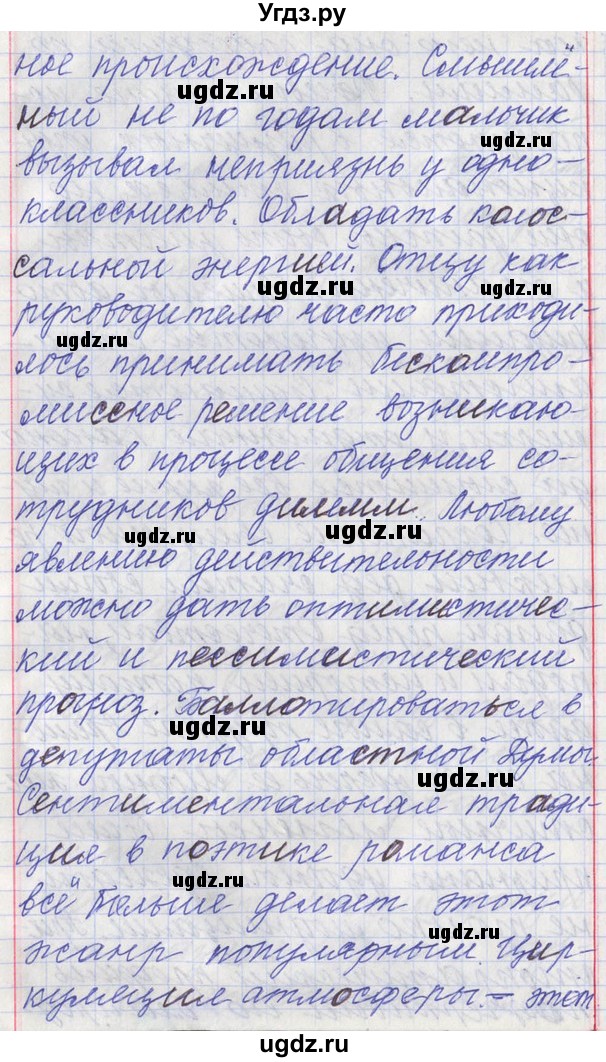 Угдз.ру
ное происхождение. Смышлё-
ный не по годам мальчик
вызывал неприязнь у одно-
классников. Обладать колос-
сальной энергией. Отцу как
руководителю часто приходи-
лось принимать бескомпро-
миссное решение возникаю-
щих в процессе общения со-
трудников дилемм. Любому
явлению действительности
можно дать оптимистичес-
кий и пессимистический
прогноз. Баллотироваться в
депутаты областной Думы.
Сентиментальная тради-
ция в поэтике романса
всё больше делает этот
жанр популярным. Цир-
куляция атмосферы – этот
ugdz.ru
ugdz.ru
ugdz.ru
ugdz.ru
ugdz.ru
ugdz.ru
ugdz.ru
ugdz.ru
ugdz.ru
ugdz.ru
ugdz.ru
ugdz.ru